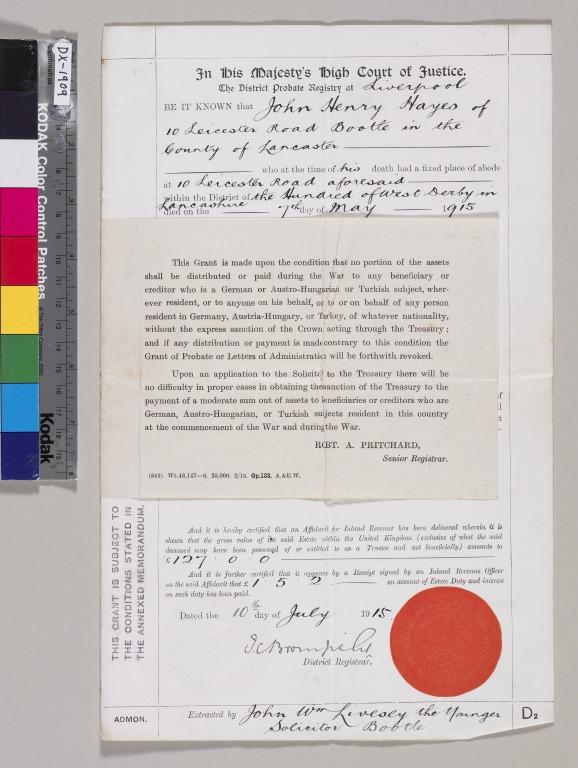 In His Majesty's High Court of Justice.
The District Probate Registry at Liverpool
BE IT KNOWN that John Henry Hayes of
10 Leicester Road Bootle in the
County of Lancaster
who at the time of his death had a fixed place of abode
at 10 Leicester Road aforesaid
within the District of the Hundred of West Derby in
Lancashire
died on the 7th day of May 1915
This Grant is made upon the condition that no portion of the assets
shall be distributed or paid during the War to any beneficiary or
creditor who is a German or Austro-Hungarian or Turkish subject, wher-
ever resident, or to anyone on his behalf, or to or on behalf of any person
resident in Germany, Austria-Hungary, or Turkey, of whatever nationality,
without the express sanction of the Crown acting through the Treasury;
and if any distribution or payment is made contrary to this condition the
Grant of Probate or Letters of Administration will be forthwith revoked.
Upon an application to the Solicitor to the Treasury there will be
no difficulty in proper cases in obtaining the sanction of the Treasury to the
payment of a moderate sum out of assets to beneficiaries or creditors who are
German, Austro-Hungarian, or Turkish subjects resident in this country
at the commencement of the War and during the War.
ROBT. A. PRITCHARD,
Senior Registrar.
(863). Wt.43,147—6. 25,000. 2/15. Gp.133. A.&E.W.
And it is hereby certified that an Affidavit for Inland Revenue has been delivered wherein it is
shewn that the gross value of the said Estate within the United Kingdom (exclusive of what the said
deceased may have been possessed of or entitled to as a Trustee and not beneficially) amounts to
£127 : 0 : 0
And it is further certified that it appears by a Receipt signed by an Inland Revenue Officer
on the said Affidavit that £1 : 5 : 2 on account of Estate Duty and interest
on such duty has been paid.
Dated the 10th day of July 1915
District Registrar.
Extracted by John Wm Livesey the Younger
Solicitor Bootle
ADMON.
D2
THIS GRANT IS SUBJECT TO
THE CONDITIONS STATED IN
THE ANNEXED MEMORANDUM.
DX-1909
KODAK Color Control Patches
Kodak